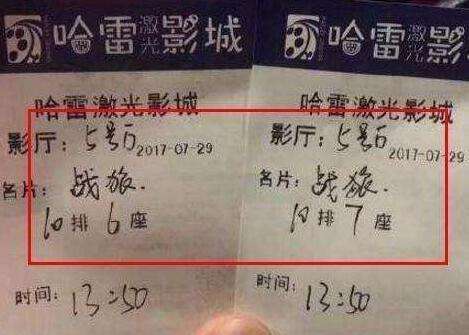 哈雷激光影城
哈雷激光影城
影厅: 5号 2017-07-29
名片: 战旅.
10排6座
时间: 13:50
哈雷激光影城
哈雷激光影城
影厅: 5号 2017-07-29
名片: 战旅.
10排7座
时间: 13:50